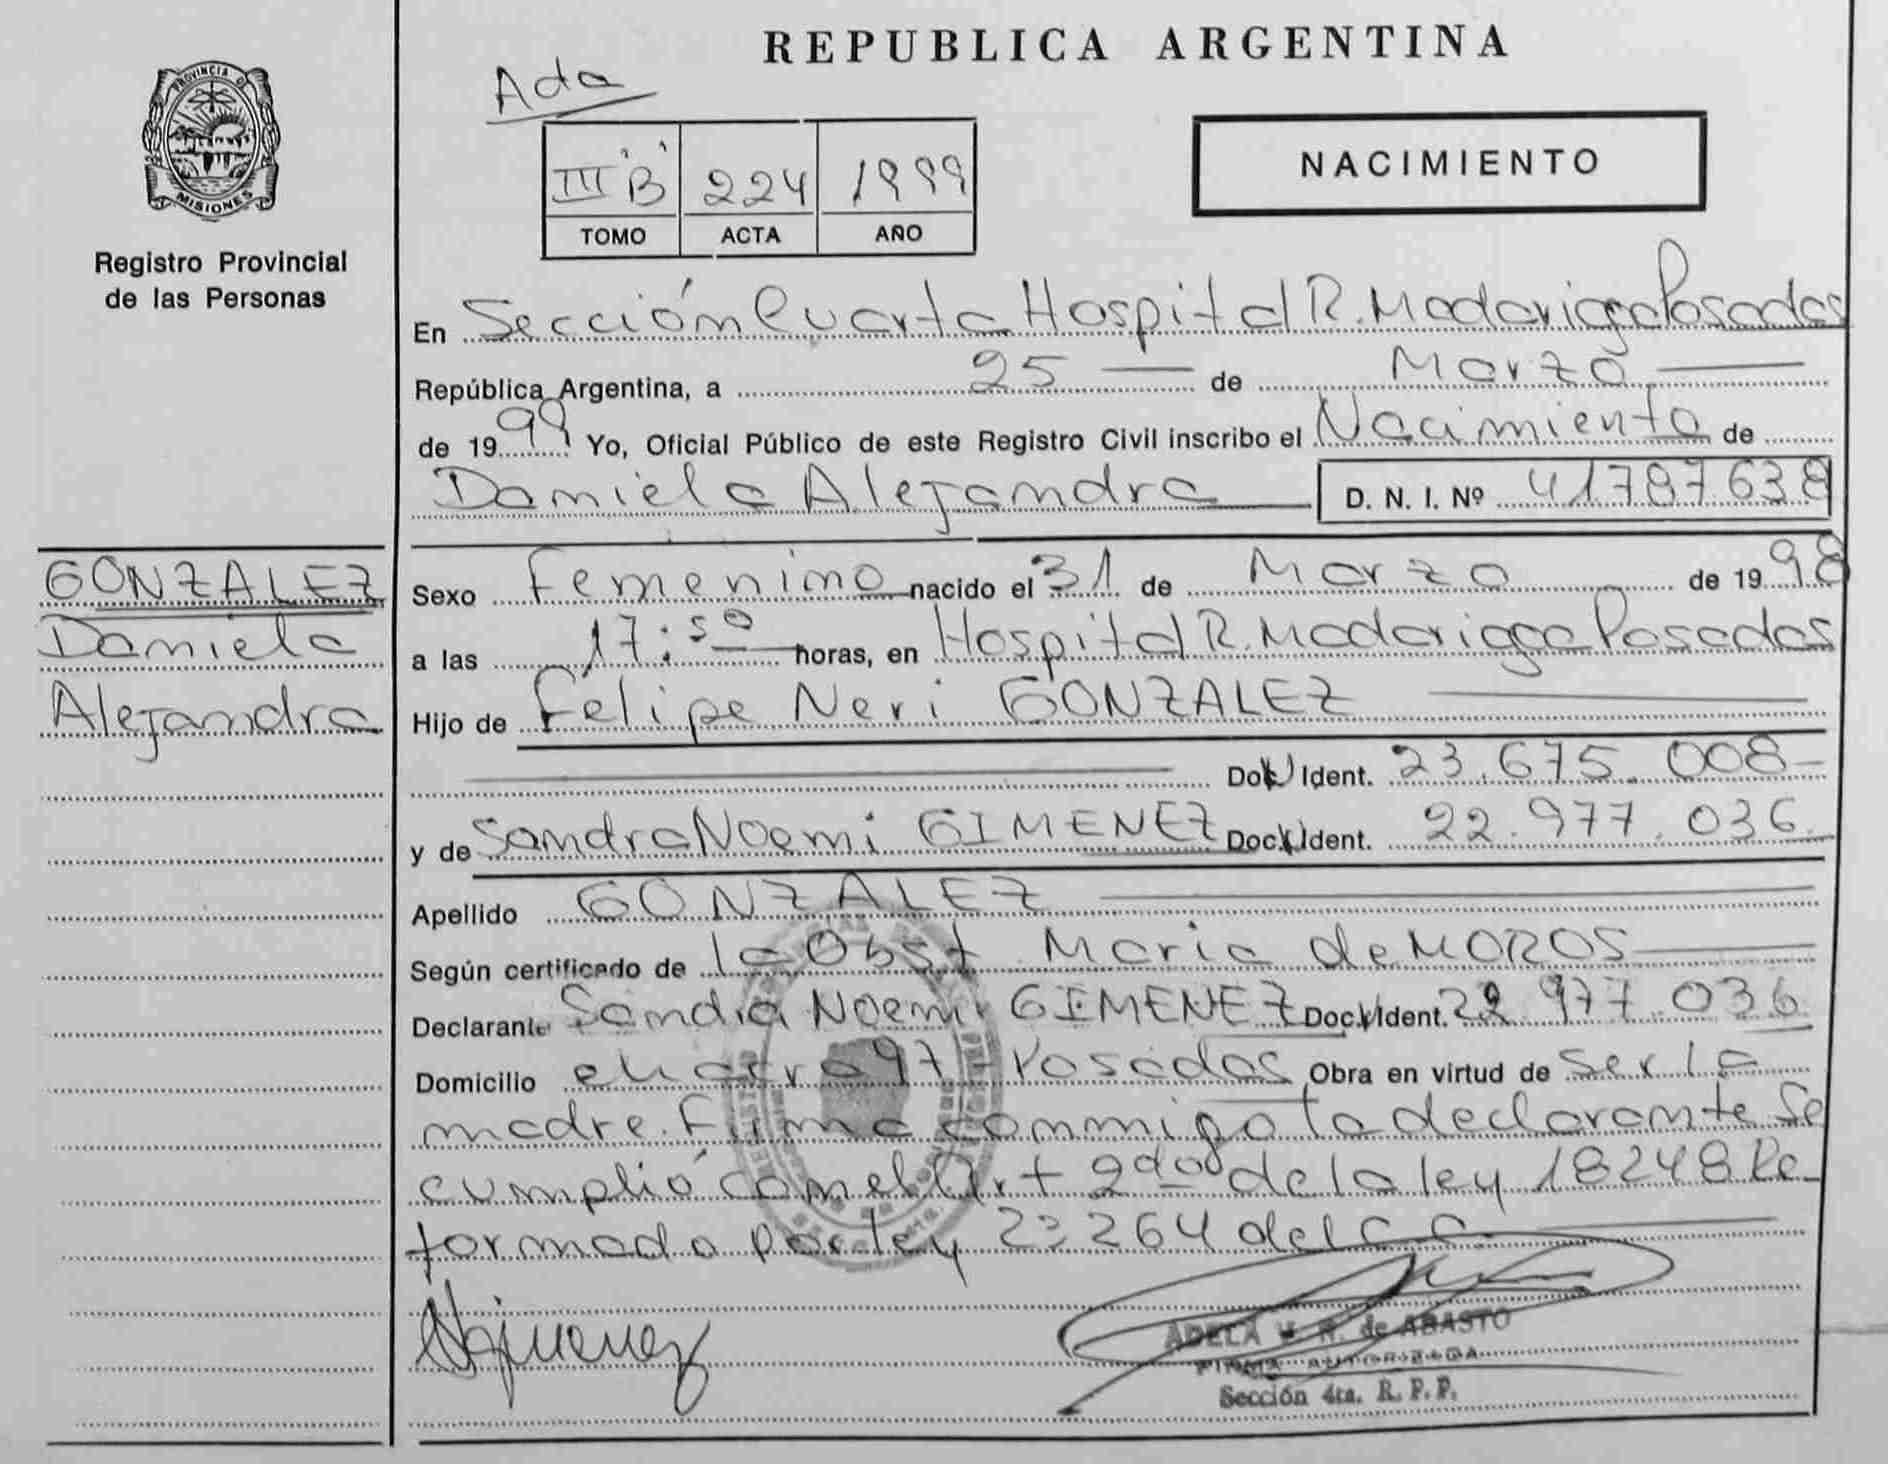 REPUBLICA ARGENTINA
Ada
PROVINCIA DE
MISIONES
Registro Provincial
de las Personas
III "B" 224 1999
TOMO ACTA AÑO
NACIMIENTO
En Sección Cuarta Hospital R. Madariaga Posadas
República Argentina, a 25 de Marzo
de 1999 Yo, Oficial Público de este Registro Civil inscribo el Nacimiento de
Daniela Alejandra D. N. I. Nº 41787638
GONZALEZ
Daniela
Alejandra
Sexo Femenino nacido el 31 de Marzo de 1998
a las 17:50 horas, en Hospital R. Madariaga Posadas
Hijo de Felipe Neri GONZALEZ
Doc. Ident. 23.675.008
y de Sandra Noemi GIMENEZ Doc. Ident. 22.977.036
Apellido GONZALEZ
Según certificado de la Obst Maria de MOROS
Declarante Sandra Noemi GIMENEZ Doc. Ident. 22.977.036
Domicilio chacra 97 Posadas Obra en virtud de ser la
madre. Firma conmigo la declarante Se
cumplió con el Art 2do de la ley 18248 Re
formado por ley 23264 del C C
ADELA de ABASTO
FIRMA AUTORIZADA
Sección 4ta. R. P. P.